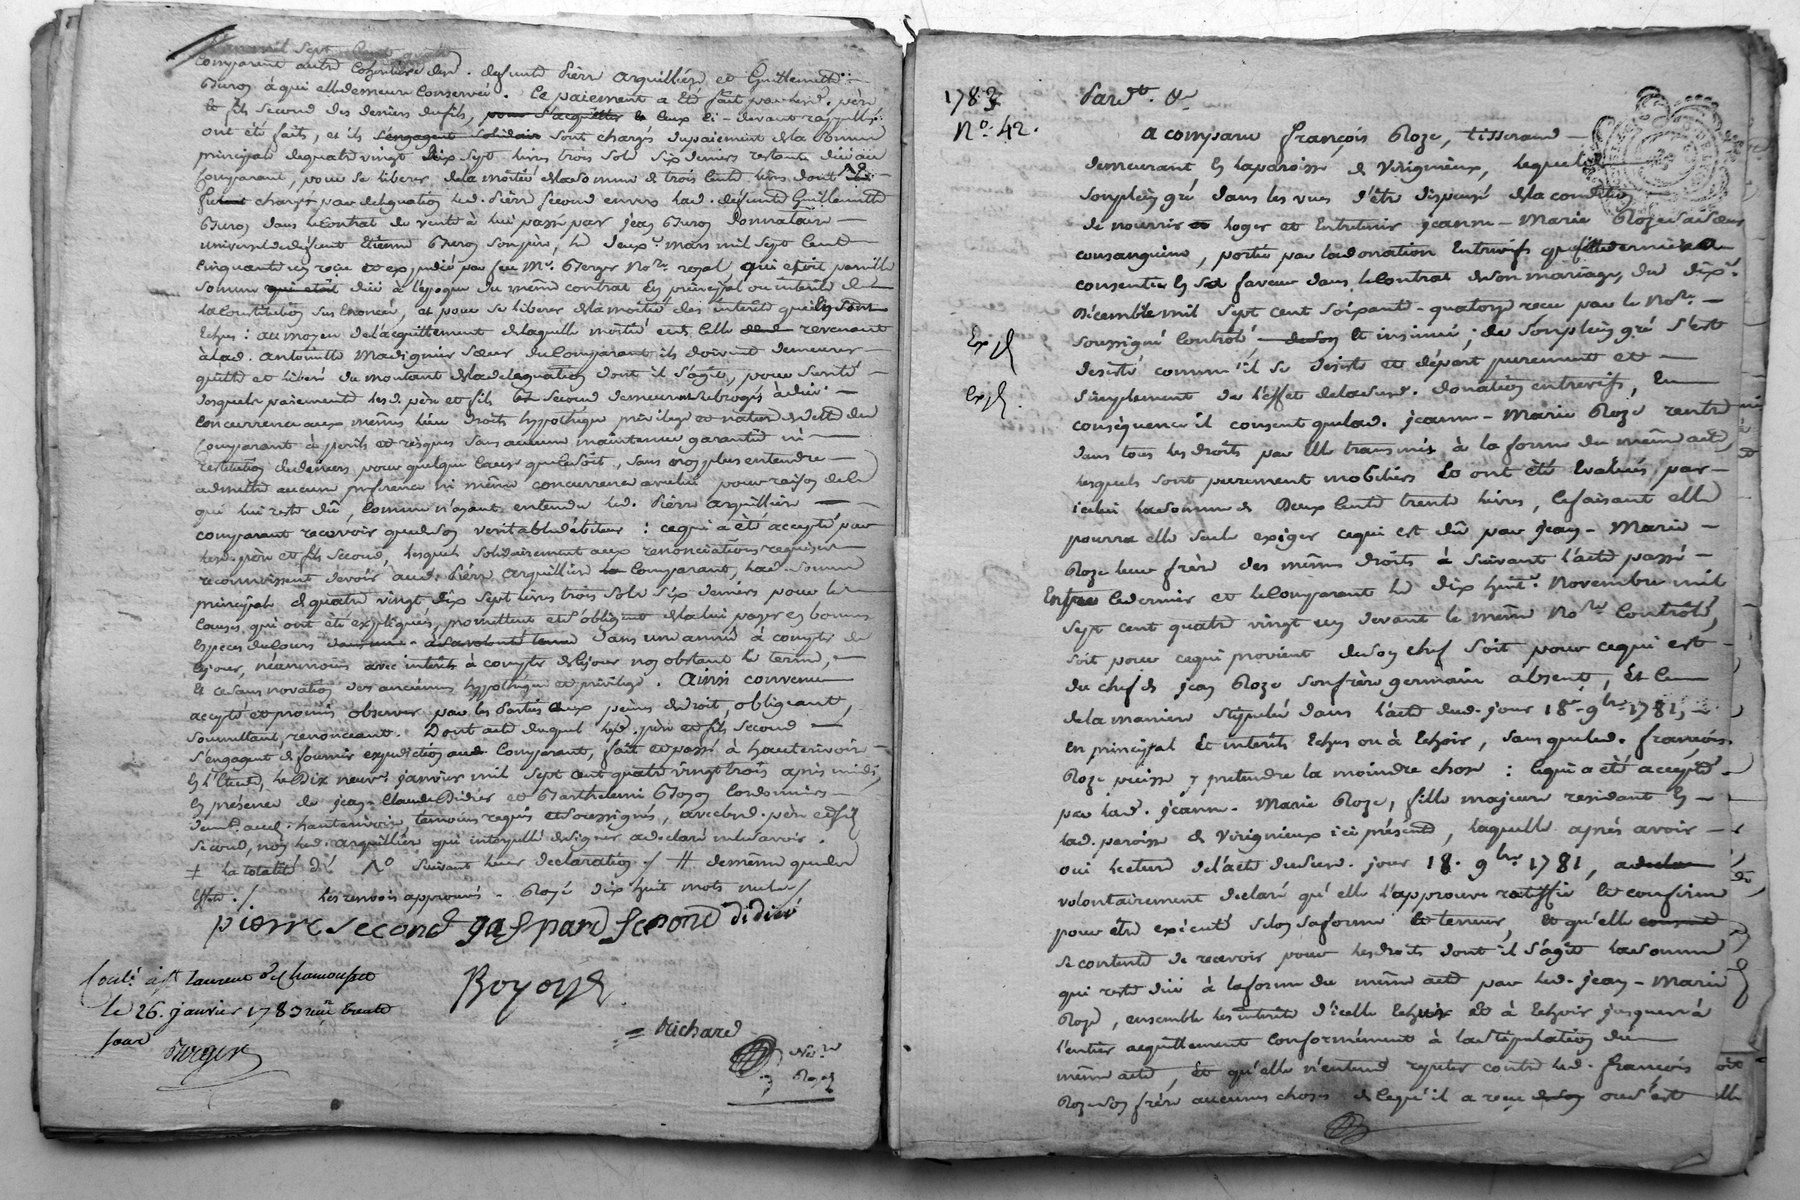 comparant autre cohéritière de lad. defunte Pierre arquillière et Guillemette
Buron à qui elle demeure Conservée. Ce paiement a été fait par lesd. père
et fils second des deniers du fils, pour s'acquitter le ceux ci-devant rappellés
ont été faits, et ils s'engagent Solidair sont chargés du paiement de la Somme
principale de quatre vingt dix sept livres trois sols six deniers restante due au
Comparant, pour se liberer de la moitié de la Somme de trois Cents livres dont
furent chargés par delegation led. Pierre second envers lad. défunte Guillemette
Buron dans le Contrat de vente à lui passé par jean Buron donnataire
universel de defunt Etienne Buron son père, le deux mars mil sept Cent
Cinquante un reçu et expédié par feu Me. Berger Nore. royal qui etoit pareille
somme qui étoit due à l'epoque du même contrat En principal ou interêts de
la Constitution sus énoncée, et pour se liberer de la moitié des interêts qui en sont
Echus : au moyen de l'acquittement de laquelle moitié et de Celle revenant
à lad. antoinette Madignier sœur du Comparant ils doivent demeurer
quittes et liberés du montant de la delegation dont il s'agit, pour sureté
desquels paiements lesd. père et fils second demeurent subrogés à due
Concurrence aux mêmes lieu droits hypothèque privilege et nature de dette du
Comparant à perils et risques sans aucune maintenue garantie ni
restitution de deniers pour quelque Cause que ce soit, sans non plus entendre
admettre aucune preference ni même concurrence avec lui pour raison de ce
qui lui reste dû, Comme n'ayant entendu led. Pierre arquillière
comparant recevoir que de son veritable débiteur : ce qui a été accepté par
lesd. père et fils second, lesquels solidairement aux renonciations requises
reconnoissent devoir aud. Pierre arquillière le Comparant, lad. somme
principale de quatre vingt dix sept livres trois sols six deniers pour les
Causes qui ont été expliquées, promettent et s'obligent de la lui payer en bonnes
Especes du Cours dans une année à compter de
ce jour, néanmoins avec interêts à compter de ce jour non obstant le terme,
et ce sans novation des anciennes hypothèque et privilege. Ainsi convenu
accepté et promis observer par les Parties aux peines de droit, obligeant,
soumettant renonceant. Dont acte duquel lesd. père et fils second
s'engagent de fournir expedition aud. Comparant, fait et passé à hauterivoire
En l'Etude, le dix neuf janvier mil sept cent quatre vingt trois après midi,
En présence de jean-Claude Didier et Barthelemi Boyon Cordonniers
demt. aud. hauterivoire temoins requis et soussignés, avec lesd. père et fils
second, non led. arquillière qui interpellé de signer a declaré ne le savoir.
+ la totalité de No suivant leur declaration # de même que les
effets ./. les renvois approuvés. Rayé dix huit mots nuls /
pierre second gaspard second didier
Boyon
Richard
Nore.
Royal
Conlé. à St. laurent de Chamousset
le 26. janvier 1783 reçu trente
sous
Berger
1783
No. 42.
Pard.t &.
a comparu françois Roze, tisserand
demeurant En la paroisse de Virignieux, lequel
son plein gré dans les vues d'être dispensé de la condition
de nourrir loger et Entretenir jeanne-Marie Roze sa sœur
consanguine, portée par la donation Entrevifs qu'elle
consentie En sa faveur dans le Contrat de son mariage, du dix
Décembre mil sept cent soixante-quatorze recu par le Nore.
Expé
soussigné Controlé et insinué ; de son plein gré s'est
desisté comme il se desiste et départ purement et
Expé.
simplement de l'effet de lad. donation entrevifs, En
conséquence il consent que lad. jeanne-Marie Roze rentre
dans tous les droits par elle transmis à la forme du même acte,
lesquels sont purement mobiliers Et ont été Evalués par
icelui la somme de Deux Cents trente livres, ce faisant elle
pourra elle seule exiger ce qui est dû par jean-Marie
Roze leur frère des mêmes droits à suivant l'acte passé
Entre ce dernier et le Comparant le dix huit Novembre mil
sept cent quatre vingt un devant le même Nore. Contrôlé,
soit pour ce qui provient de son chef soit pour ce qui est
du chef de jean Roze son frère germain absent, Et ce
de la maniere stipulée dans l'acte dud. jour 18. 9bre. 1781,
En principal Et interêts Echus ou à Echoir, sans que led. françois
Roze puisse y pretendre la moindre chose : ce qui a été accepté
par lad. jeanne-Marie Roze, fille majeure residant En
lad. paroisse de Virignieux ici présente, laquelle après avoir
oui lecture de l'acte dud. jour 18. 9bre. 1781, a declaré
volontairement declaré qu'elle l'approuve ratiffie et confirme
pour être exécuté selon sa forme Et teneur, Et qu'elle consent
se contente de recevoir pour les droits dont il s'agit la somme
qui reste due à la forme du même acte par led. jean-Marie
Roze, ensemble les interêts d'icelle Echus Et à Echoir jusques à
l'entier acquittement conformément à la stipulation du
même acte, Et qu'elle n'entend repeter contre led. françois
Roze son frère aucunes choses de ce qu'il a reçu ou s'est